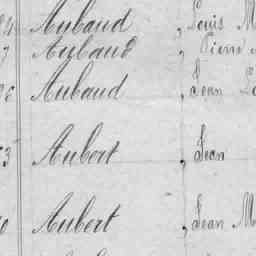 Aubaud , Louis M
7 Aubaud , Pierre
Aubaud , Jean Lo
3 Aubert , Jean
0 Aubert , Jean M